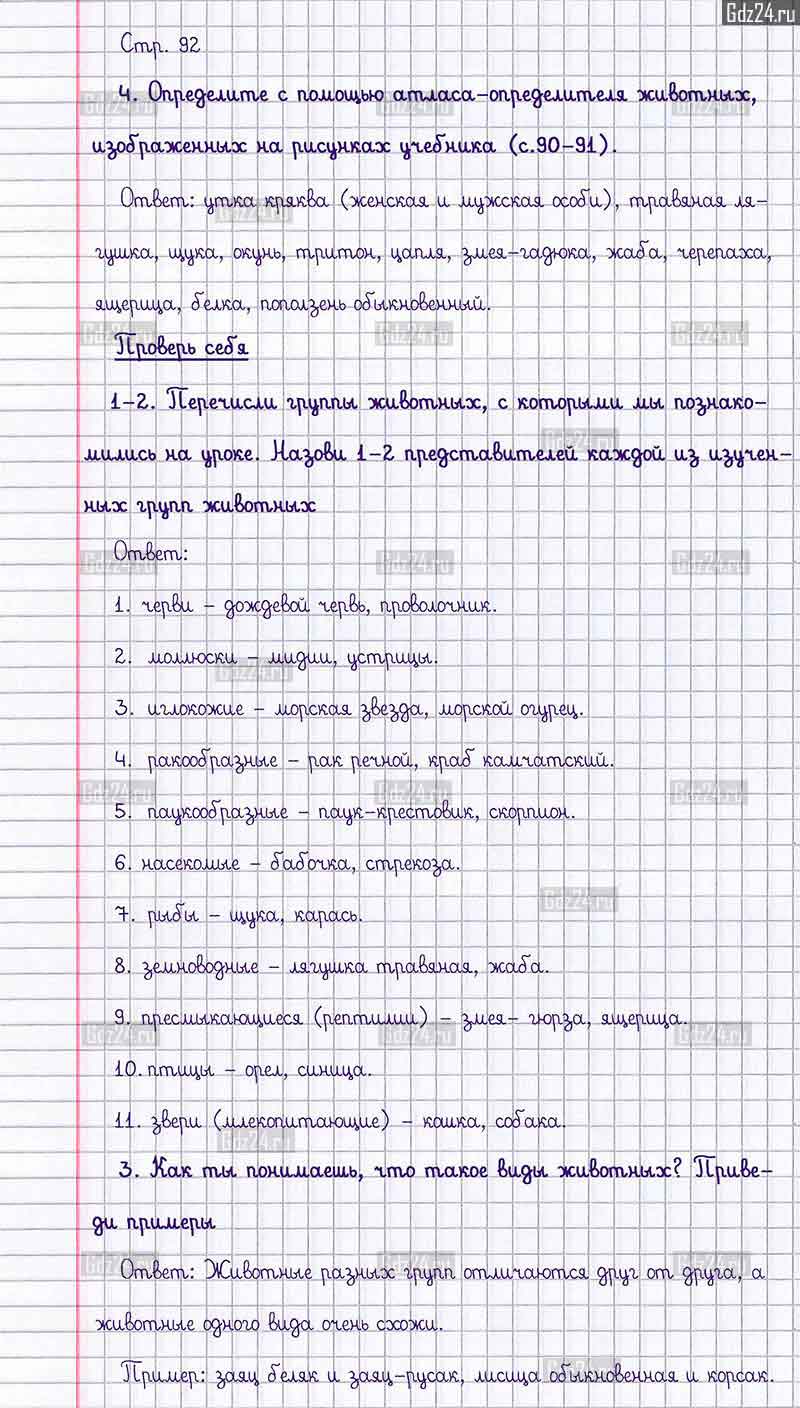 Gdz24.ru
Стр. 92
4. Определите с помощью атласа-определителя животных,
изображенных на рисунках учебника (с.90-91).
Ответ: утка кряква (женская и мужская особи), травяная ля-
гушка, щука, окунь, тритон, цапля, змея-гадюка, жаба, черепаха,
ящерица, белка, поползень обыкновенный.
Проверь себя
1-2. Перечисли группы животных, с которыми мы познако-
мились на уроке. Назови 1-2 представителей каждой из изучен-
ных групп животных
Ответ:
1. черви - дождевой червь, проволочник.
2. моллюски - мидии, устрицы.
3. иглокожие - морская звезда, морской огурец.
4. ракообразные - рак речной, краб камчатский.
5. паукообразные - паук-крестовик, скорпион.
6. насекомые - бабочка, стрекоза.
7. рыбы - щука, карась.
8. земноводные - лягушка травяная, жаба.
9. пресмыкающиеся (рептилии) - змея- гюрза, ящерица.
10. птицы - орел, синица.
11. звери (млекопитающие) - кошка, собака.
3. Как ты понимаешь, что такое виды животных? Приве-
ди примеры
Ответ: Животные разных групп отличаются друг от друга, а
животные одного вида очень схожи.
Пример: заяц беляк и заяц-русак, лисица обыкновенная и корсак.